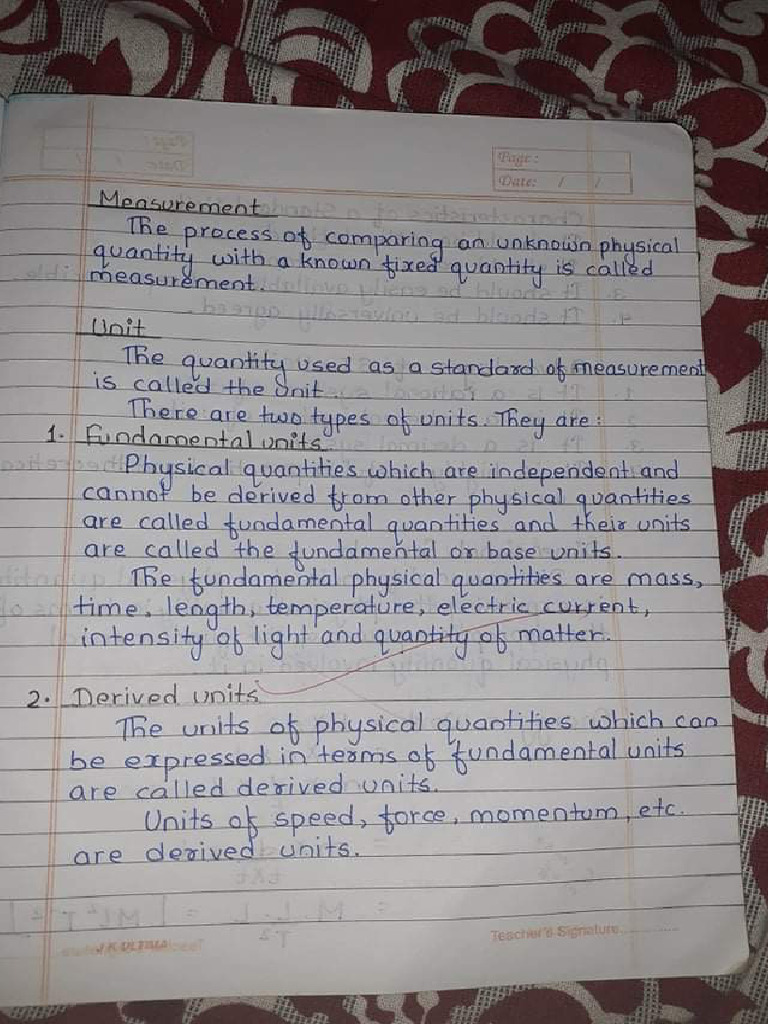 Page:
Date: / /
Measurement
The process of comparing an unknown physical
quantity with a known fixed quantity is called
measurement.
Unit
The quantity used as a standard of measurement
is called the unit.
There are two types of units. They are:
1. Fundamental units
Physical quantities which are independent and
cannot be derived from other physical quantities
are called fundamental quantities and their units
are called the fundamental or base units.
The fundamental physical quantities are mass,
time, length, temperature, electric current,
intensity of light and quantity of matter.
2. Derived units
The units of physical quantities which can
be expressed in terms of fundamental units
are called derived units.
Units of speed, force, momentum, etc.
are derived units.
Teacher's Signature